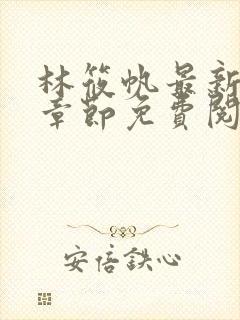 林筱帆最新
章節免費閱
安倍鉄心